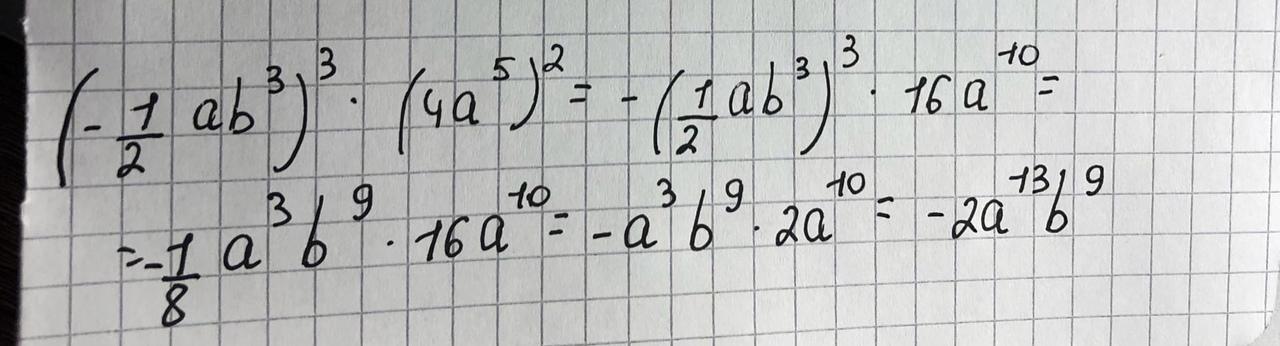 (-1/2 ab³)³ · (4a⁵)² = -(1/2 ab³)³ · 16a¹⁰ =
= -1/8 a³b⁹ · 16a¹⁰ = -a³b⁹ · 2a¹⁰ = -2a¹³b⁹